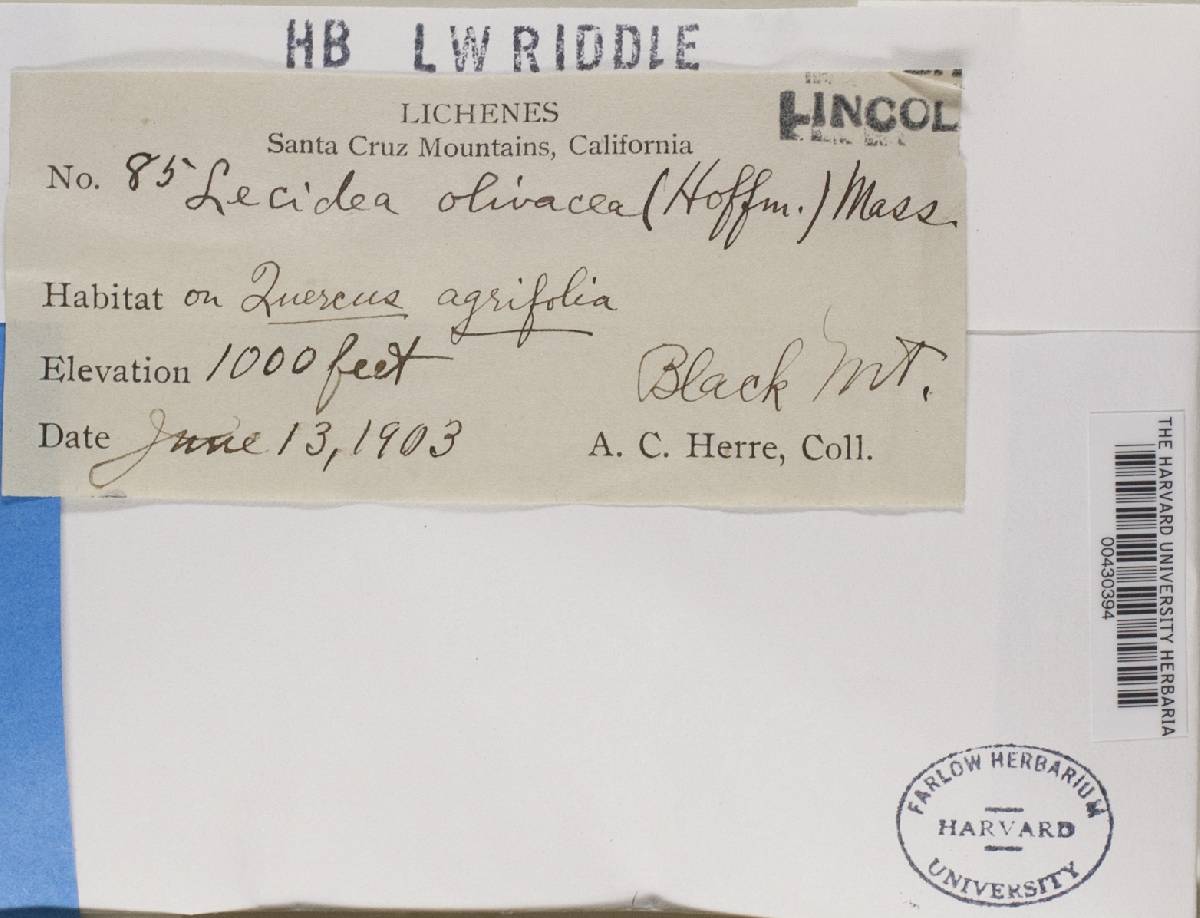 HB L W RIDDLE
LINCOL
LICHENES
Santa Cruz Mountains, California
No. 85 Lecidea olivacea (Hoffm.) Mass.
Habitat on Quercus agrifolia
Elevation 1000 feet
Black Mt.
Date June 13, 1903
A. C. Herre, Coll.
THE HARVARD UNIVERSITY HERBARIA
00430394
FARLOW HERBARIUM
HARVARD
UNIVERSITY